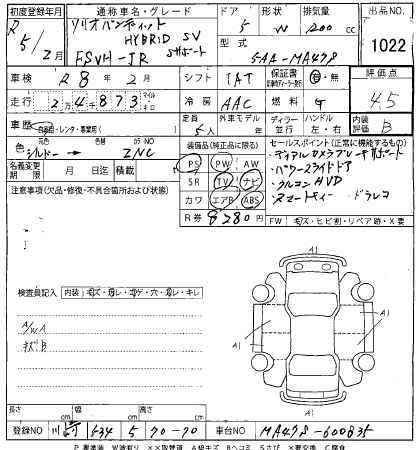 初度登録年月 通称車名・グレード ドア 形状 排気量 出品NO
R 5/2月 ソリオバンディット HYBRID SV 5 W 1200 cc 1022
FSVH-JR Sサポート 型式 5AA-MA47S
車検 R8年2月 シフト IAT 保証書 有・無 評価点
走行 24873 マイル キロ 冷房 AAC 燃料 G 4.5
車歴 自家用・レンタ・事業用( ) 定員 5人 外車モデル 年 ディーラー 並行 ハンドル 左・右 内装評価 B
色 元色 シルバー→ カラーNO ZNC 装備品(純正品に限る) セールスポイント(正常に機能するもの)
名義変更期限 月 日迄 積載 PS PW AW
注意事項(欠品・修復・不具合箇所及び改造) SR TV ナビ
・デュアルカメラブレーキサポート
・パワースライドドア
・クルコン HUD
・スマートキー ・ドラレコ
カワ エアB ABS
R券 8380 FW キズ・ヒビ割・リペア跡・X要
検査員記入 内装 キズ・汚レ・コゲ・穴・切レ・キレ
A/WA
キズB
A1
A1
A1
A1
長さ cm 幅 cm 高さ cm
登録NO 川崎 534 5 70-70 車台NO MA47S-600835
P要塗装 W波有り ××取替済 A線キズ Bヘコミ Sさび ×要交換 C腐食